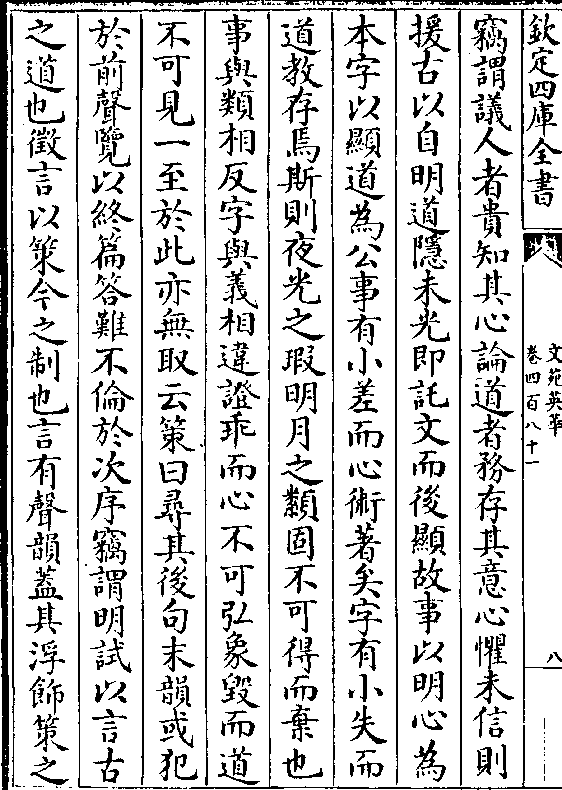 欽定四庫全書
文苑英華
卷四百八十一
八
竊謂議人者貴知其心論道者務存其意心懼未信則
援古以自明道隱未光即託文而後顯故事以明心為
本字以顯道為公事有小差而心術著矣字有小失而
道教存焉斯則夜光之瑕明月之纇固不可得而棄也
事與類相反字與義相違證乖而心不可弘象毀而道
不可見一至於此亦無取云策曰尋其後句末韻或犯
於前聲覽以終篇答難不倫於次序竊謂明試以言古
之道也徵言以策今之制也言有聲韻蓋其浮飾策之